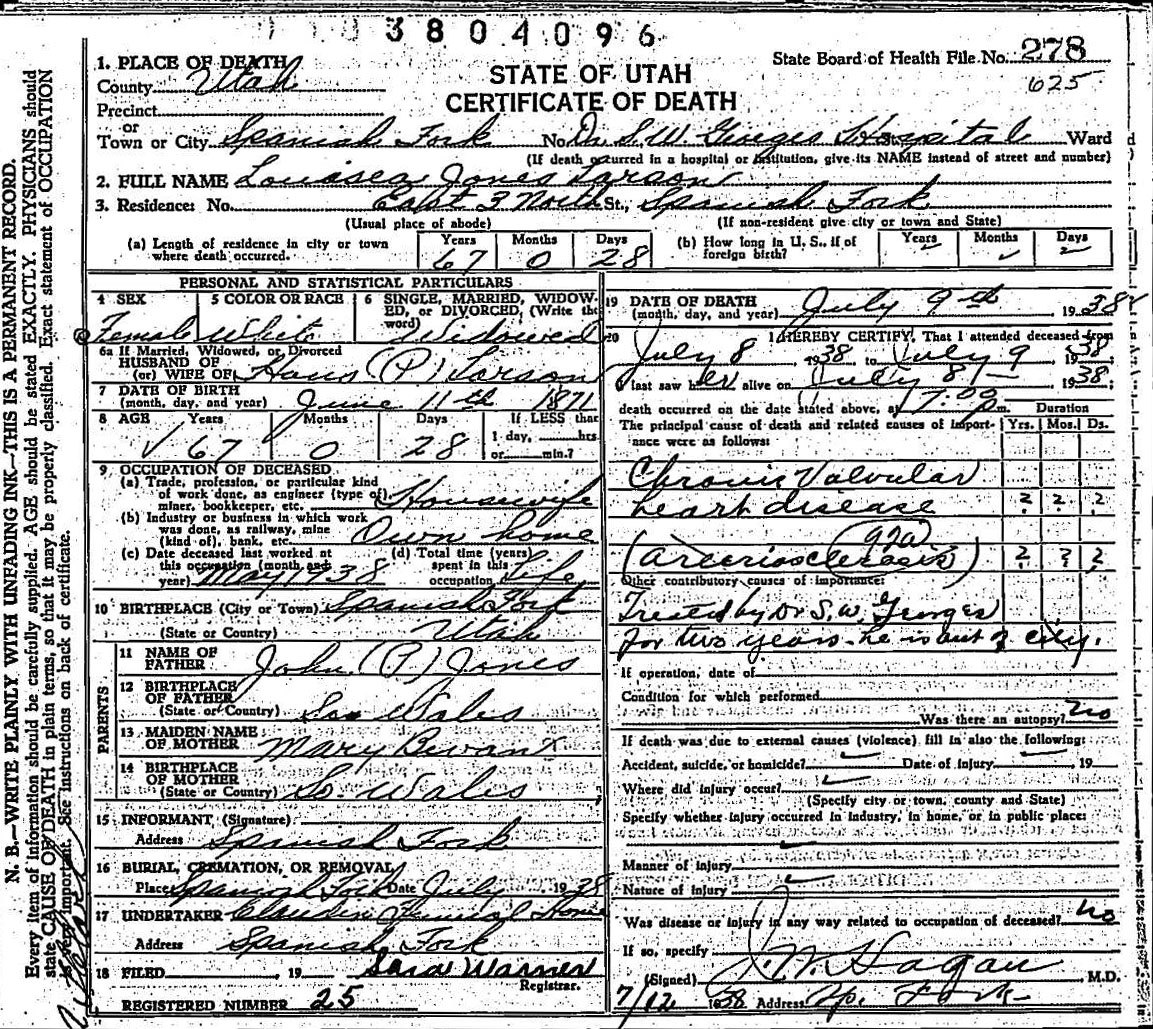 3804096
1. PLACE OF DEATH
State Board of Health File No. 278
County Utah
STATE OF UTAH
625
Precinct
CERTIFICATE OF DEATH
or
Town or City Spanish Fork No. Dr. S. W. Georges Hospital St. Ward
(If death occurred in a hospital or institution, give its NAME instead of street and number)
2. FULL NAME Louisea Jones Larson
3. Residence: No. East 3 North St., Spanish Fork
(Usual place of abode) (If non-resident give city or town and State)
(a) Length of residence in city or town where death occurred. Years 67 Months 0 Days 28
(b) How long in U. S., if of foreign birth? Years Months Days
PERSONAL AND STATISTICAL PARTICULARS
4 SEX Female
5 COLOR OR RACE White
6 SINGLE, MARRIED, WIDOWED, or DIVORCED, (Write the word) Widowed
6a If Married, Widowed, or Divorced
HUSBAND OF
(or) WIFE OF Hans (P) Larson
7 DATE OF BIRTH
(month, day, and year) June 11th 1871
8 AGE Years Months Days If LESS than
67 0 28 1 day, hrs
or min.?
9 OCCUPATION OF DECEASED
(a) Trade, profession, or particular kind
of work done, as engineer (type of)
miner, bookkeeper, etc. Housewife
(b) Industry or business in which work
was done, as railway, mine
(kind of), bank, etc. Own home
(c) Date deceased last worked at
this occupation (month and
year) May 1938
(d) Total time (years)
spent in this
occupation Life
10 BIRTHPLACE (City or Town) Spanish Fork
(State or Country) Utah
PARENTS
11 NAME OF
FATHER John (P) Jones
12 BIRTHPLACE
OF FATHER
(State or Country) So Wales
13 MAIDEN NAME
OF MOTHER Mary Bevan
14 BIRTHPLACE
OF MOTHER
(State or Country) So. Wales
15 INFORMANT (Signature)
Address Spanish Fork
16 BURIAL, CREMATION, OR REMOVAL
Place Spanish Fork Date July 1938
17 UNDERTAKER Claudin Funeral Home
Address Spanish Fork
18 FILED 19 Sara Warner
Registrar.
REGISTERED NUMBER 25
19 DATE OF DEATH
(month, day, and year) July 9th 1938
20 I HEREBY CERTIFY, That I attended deceased from
July 8 1938 to July 9 1938
I last saw her alive on July 8 1938
death occurred on the date stated above, at 7:00 p m. Duration
The principal cause of death and related causes of importance were as follows: Yrs. Mos. Ds.
Chronic Valvular
heart disease ? ? ?
92a
(Arteriosclerosis) ? ? ?
Other contributory causes of importance:
Treated by Dr S. W. Georges
for two years. he is out of city.
If operation, date of
Condition for which performed
Was there an autopsy? no
If death was due to external causes (violence) fill in also the following:
Accident, suicide, or homicide? Date of injury 19
Where did injury occur?
(Specify city or town, county and State)
Specify whether injury occurred in industry, in home, or in public place:
Manner of injury
Nature of injury
Was disease or injury in any way related to occupation of deceased? no
If so, specify
(Signed) J. W. Hagan M.D.
7/12 1938 Address Sp. Fork
N. B.—WRITE PLAINLY WITH UNFADING INK—THIS IS A PERMANENT RECORD.
Every item of information should be carefully supplied. AGE should be stated EXACTLY. PHYSICIANS should
state CAUSE OF DEATH in plain terms, so that it may be properly classified. Exact statement of OCCUPATION
is very important. See instructions on back of certificate.